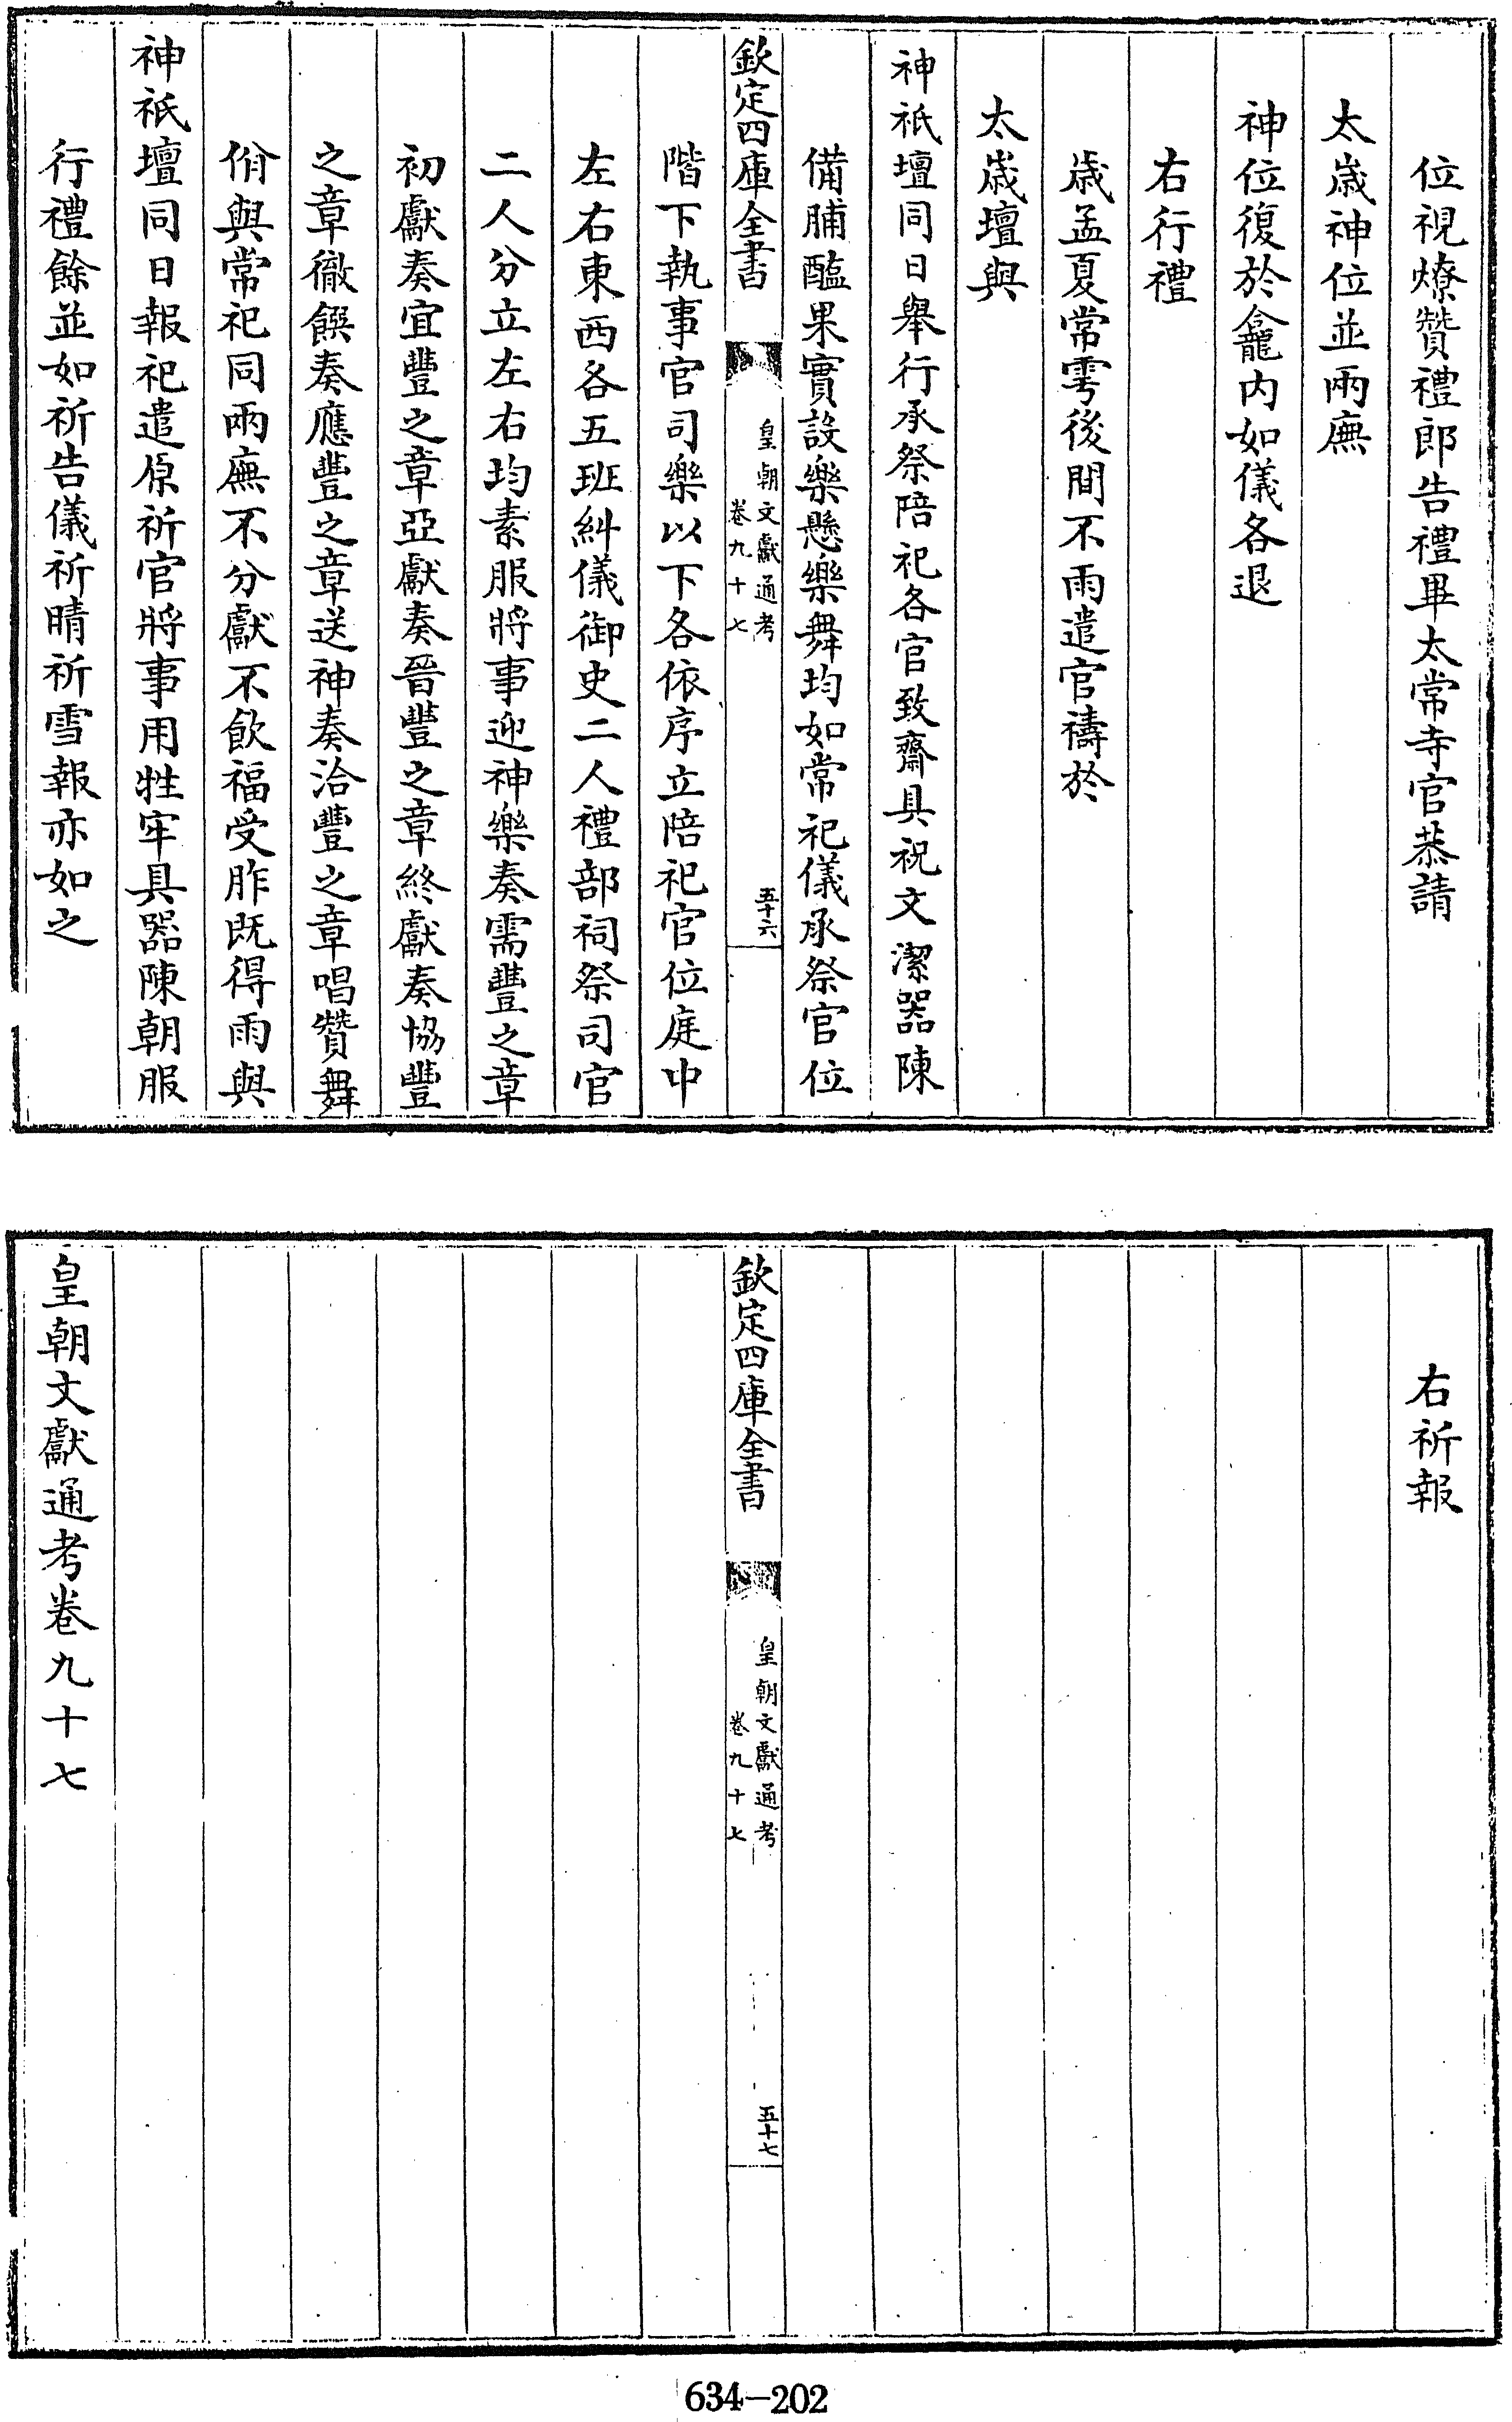 位視燎贊禮郎告禮畢太常寺官恭請
太歲神位並兩廡
神位復於龕内如儀各退
右行禮
歲孟夏常雩後間不雨遣官禱於
太歲壇與
神祇壇同日舉行承祭陪祀各官致齋具祝文潔器陳
備脯醢果實設樂懸樂舞均如常祀儀承祭官位
欽定四庫全書
皇朝文獻通考
卷九十七
五十六
階下執事官司樂以下各依序立陪祀官位庭中
左右東西各五班糾儀御史二人禮部祠祭司官
二人分立左右均素服將事迎神樂奏需豐之章
初獻奏宜豐之章亞獻奏晉豐之章終獻奏協豐
之章徹饌奏應豐之章送神奏洽豐之章唱贊舞
佾與常祀同兩廡不分獻不飲福受胙既得雨與
神祇壇同日報祀遣原祈官將事用牲牢具器陳朝服
行禮餘並如祈告儀祈晴祈雪報亦如之
右祈報
欽定四庫全書
皇朝文獻通考
卷九十七
五十七
皇朝文獻通考卷九十七
634-202